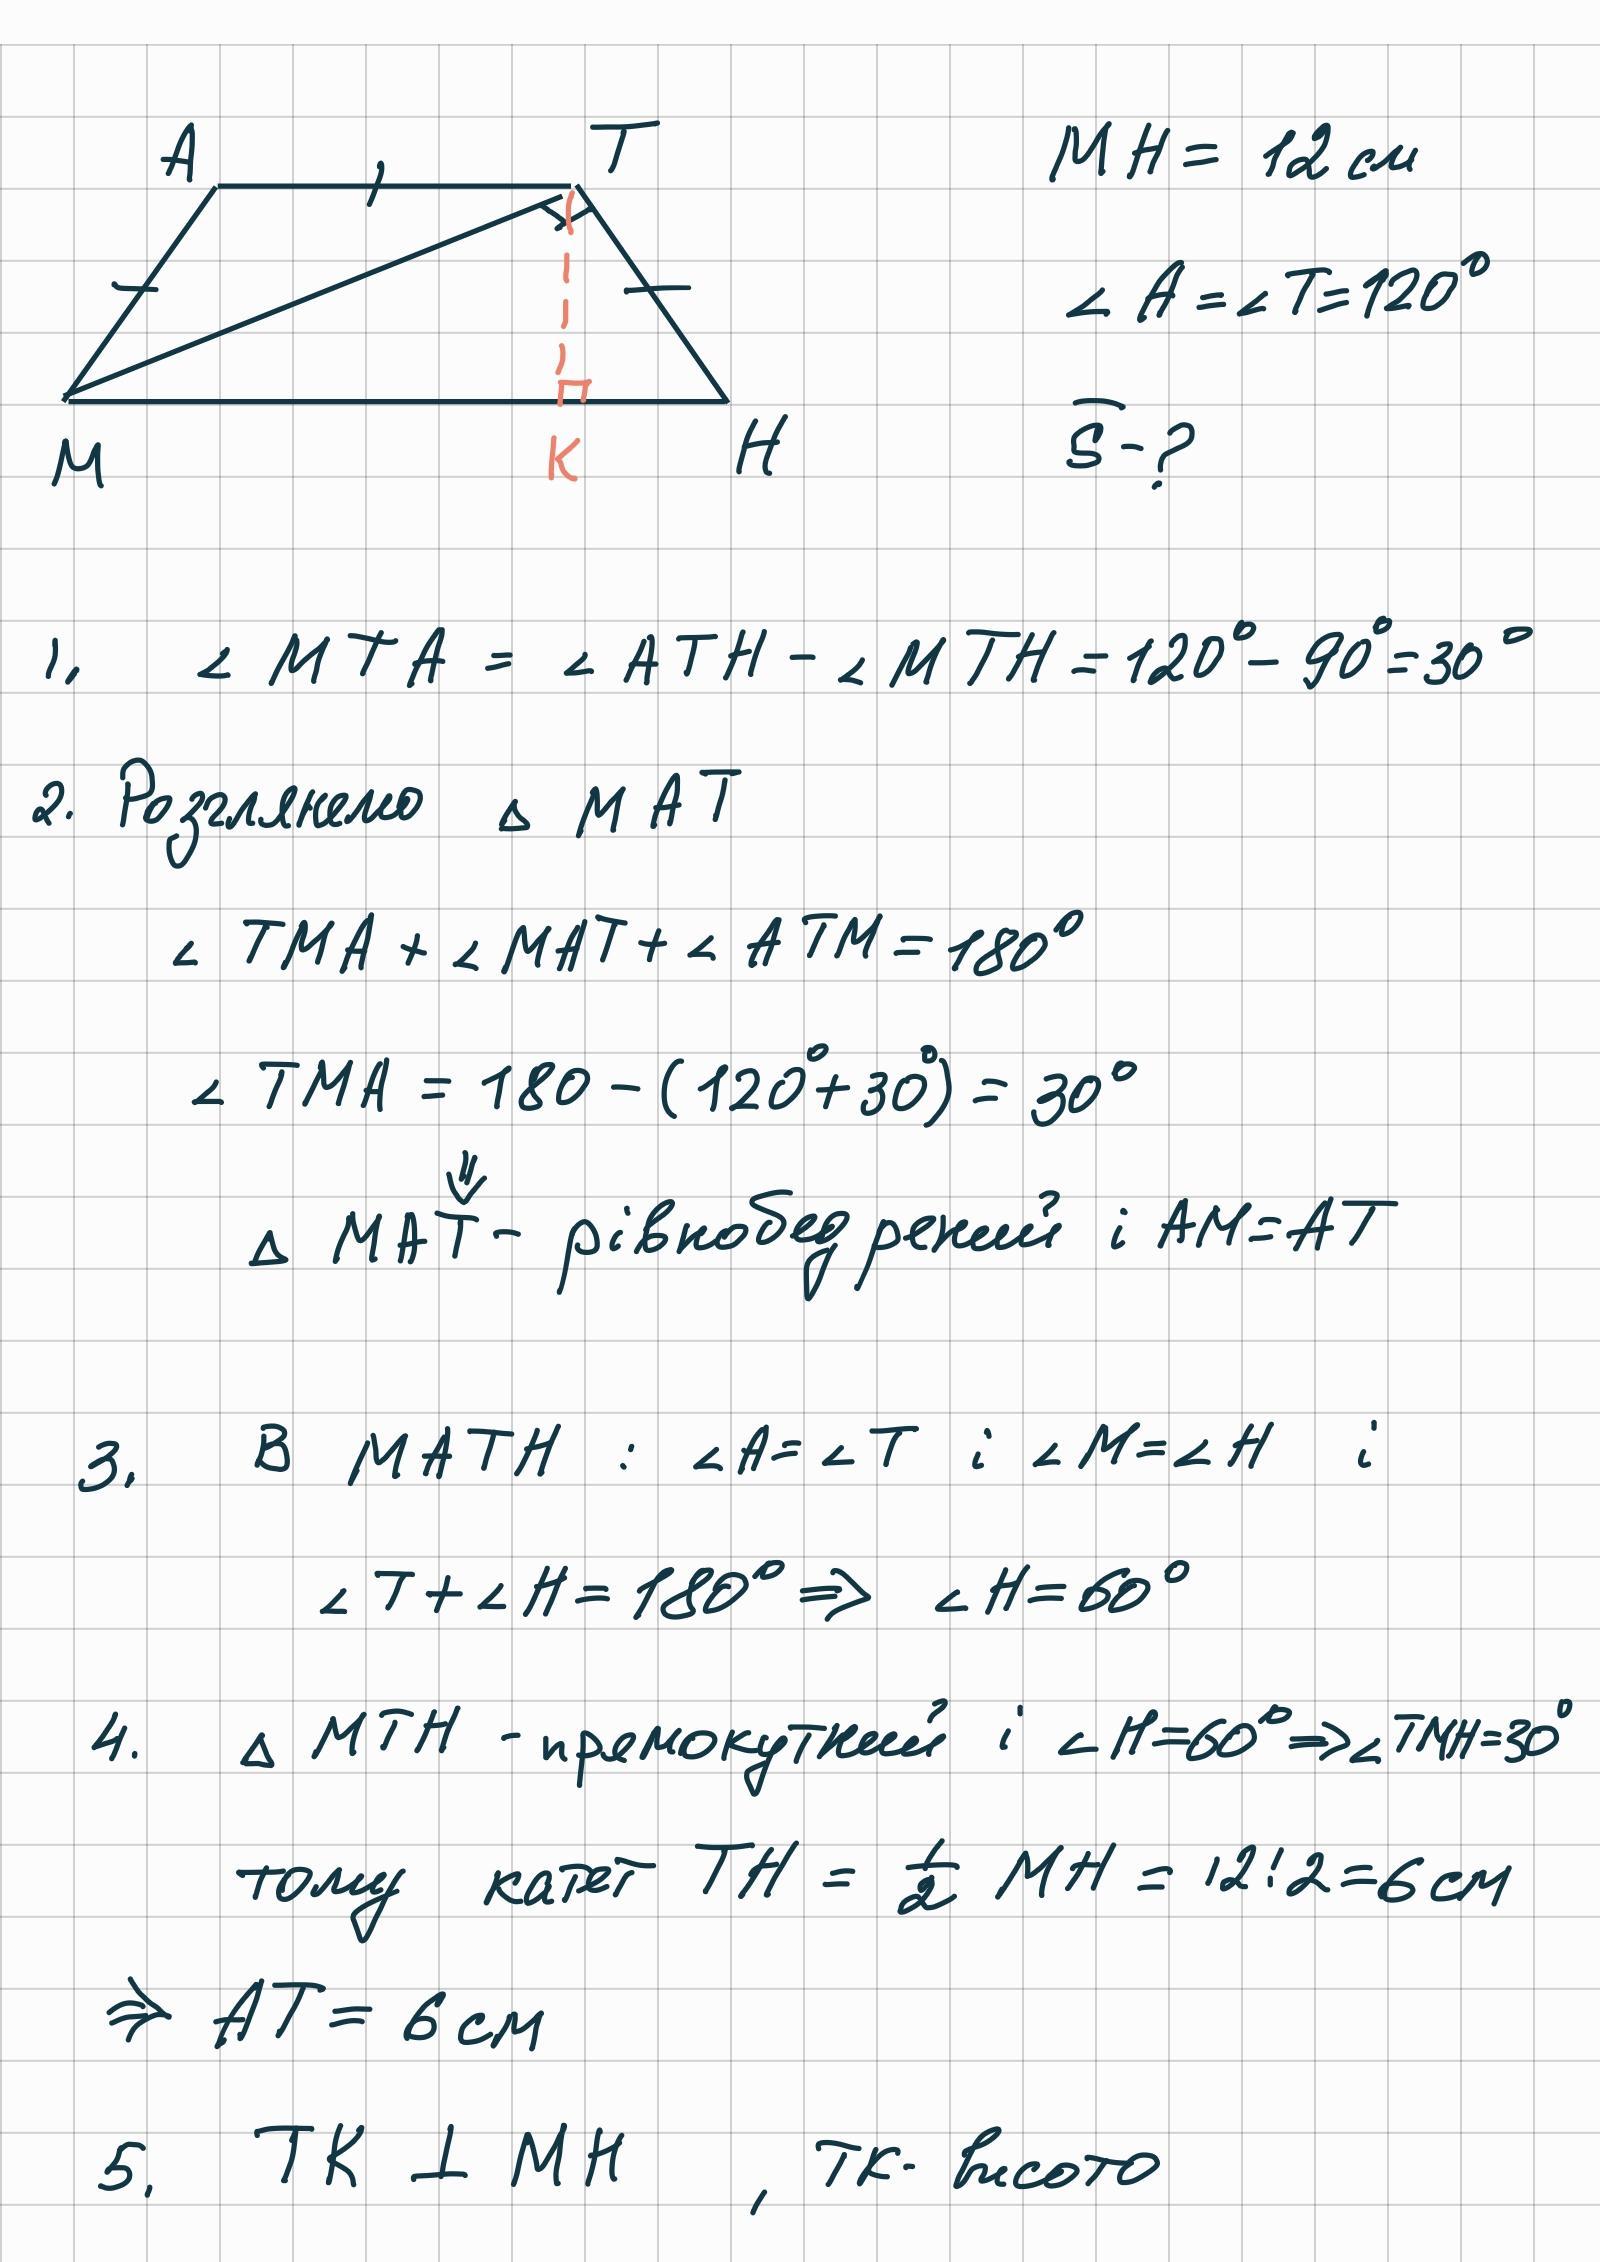 A T
M K H
MH = 12 см
∠A = ∠T = 120°
S - ?
1. ∠MTA = ∠ATH - ∠MTH = 120° - 90° = 30°
2. Розглянемо △ MAT
∠TMA + ∠MAT + ∠ATM = 180°
∠TMA = 180 - (120° + 30°) = 30°
⇓
△ MAT - рівнобедрений і AM = AT
3. В MATH : ∠A = ∠T і ∠M = ∠H і
∠T + ∠H = 180° ⇒ ∠H = 60°
4. △ MTH - прямокутний і ∠H = 60° ⇒ ∠TMH = 30°
тому катет TH = 1/2 MH = 12:2 = 6 см
⇒ AT = 6 см
5. TK ⊥ MH , TK - висота